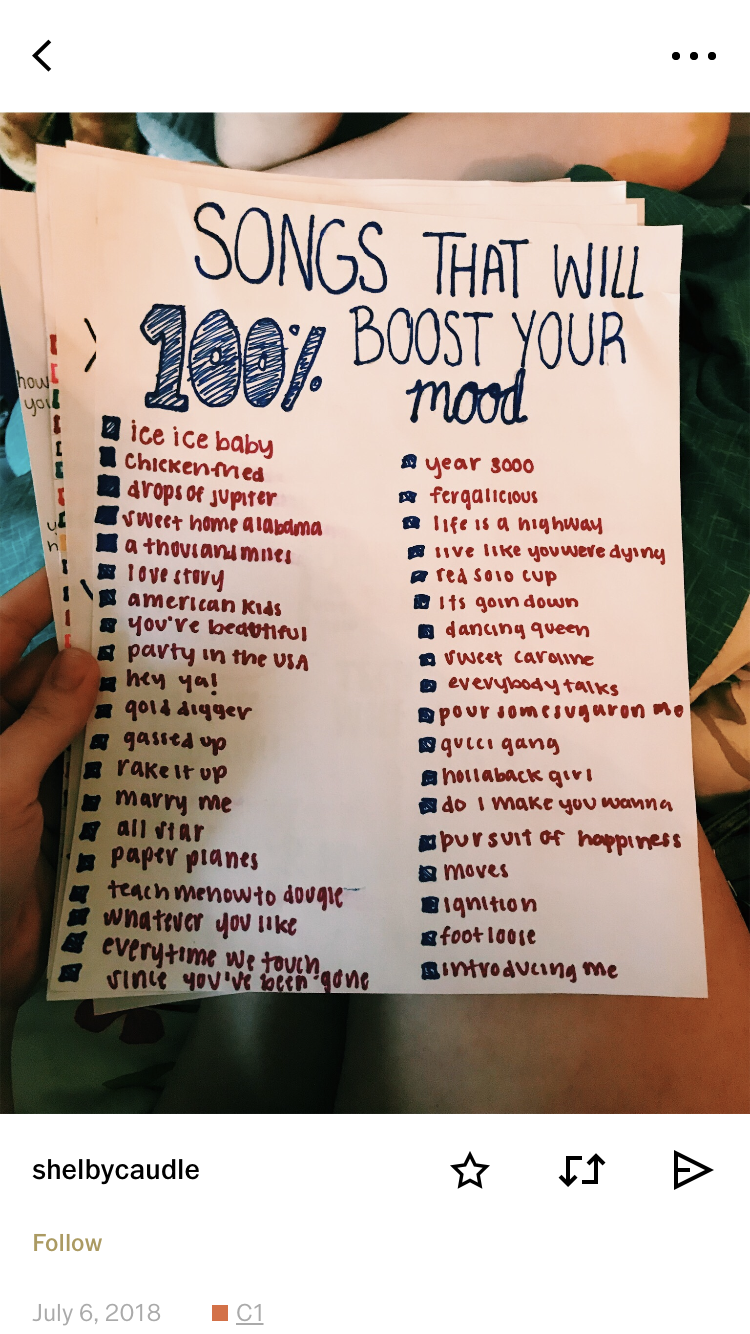 SONGS THAT WILL
100% BOOST YOUR
mood
ice ice baby
chicken fried
drops of jupiter
sweet home alabama
a thousand miles
love story
american kids
you're beautiful
party in the USA
hey ya!
gold digger
gassed up
rake it up
marry me
all star
paper planes
teach me how to dougie
whatever you like
everytime we touch
since you've been gone
year 3000
fergalicious
life is a highway
live like you were dying
red solo cup
its goin down
dancing queen
sweet caroline
everybody talks
pour some sugar on me
gucci gang
hollaback girl
do I make you wanna
pursuit of happiness
moves
ignition
footloose
introducing me
how
you
shelbycaudle
Follow
July 6, 2018 C1